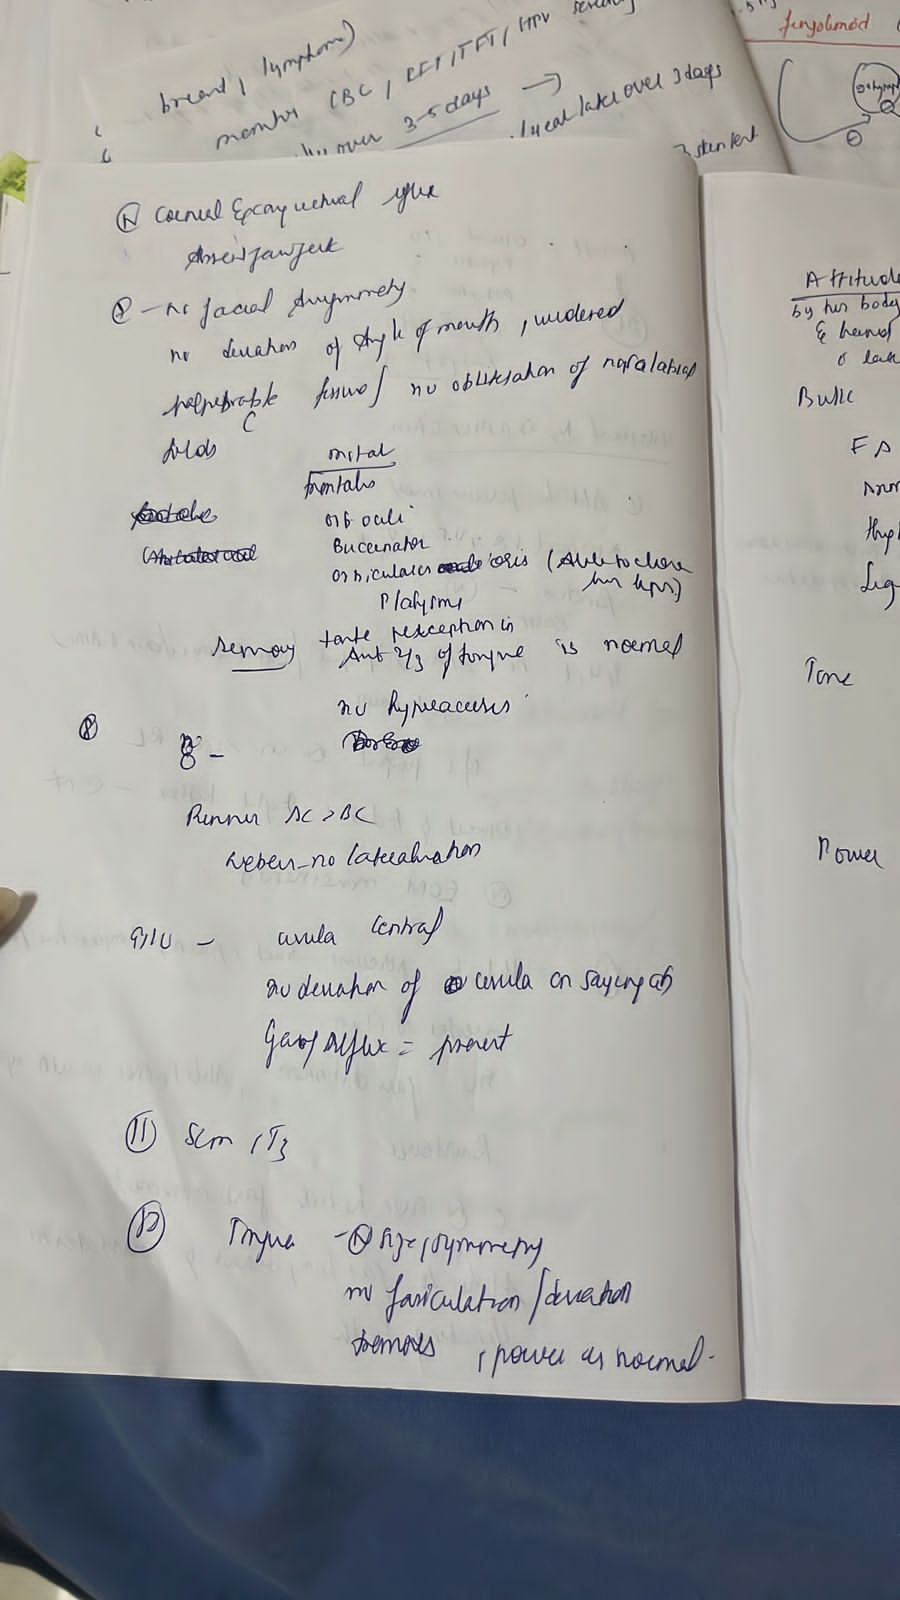 breast, lymphoma)
monitor CBC, RFT, TFT, HPV
over 3-5 days →
over 3 days
fingolimod
Ⓝ Corneal & conjunctival reflex
jaw jerk
- no facial Asymmetry
no deviation of Angle of mouth, widened
palpebrable fissure/ no obliteration of nasolabial
folds
frontalis
orb oculi
Buccinator
orbicularis oris (Able to close
her lips)
Platysma
Sensory taste perception in
Ant 2/3 of tongue is normal
no hyperacusis
8 -
Rinner AC > BC
Weber - no lateralisation
9/10 - uvula central
no deviation of uvula on saying ah
Gag reflex = present
⑪ Scm, Tz
⑫ Tongue - Ⓝ size, symmetry
no fasiculation/deviation
tremors, power is normal.
Attitude
by her body
&
Bulk
FA
Arm
thigh
Leg
Tone
Power